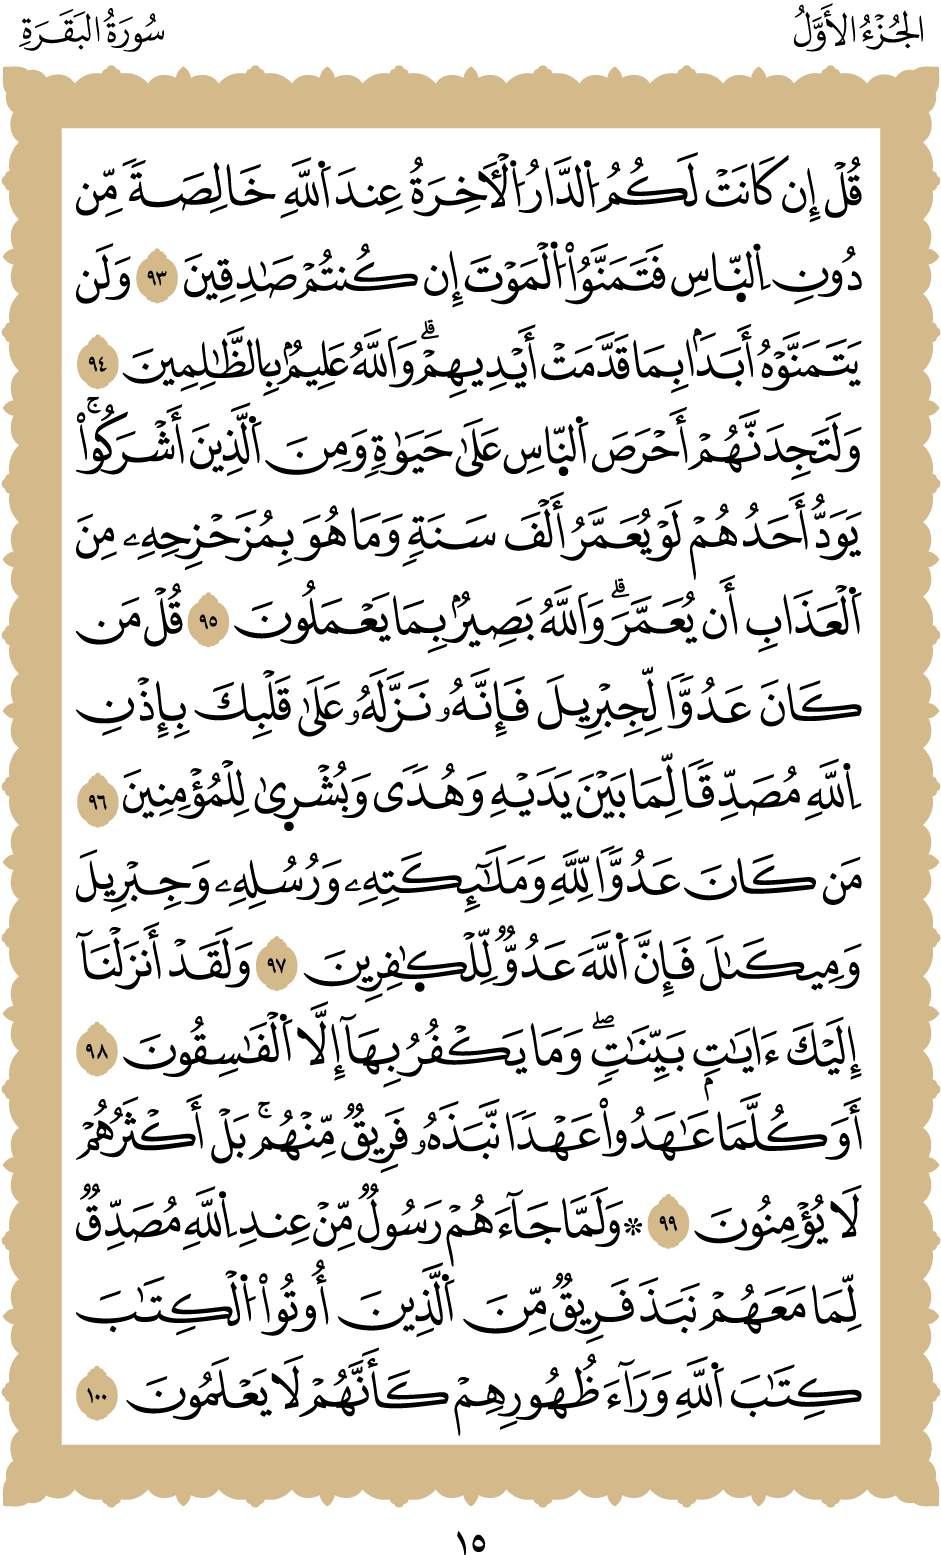 الجُزْءُ الأَوَّلُ
سُورَةُ البَقَرَةِ
قُلْ إِن كَانَتْ لَكُمُ اُ۬لدَّارُ اُ۬لْأٓخِرَةُ عِندَ اَ۬للَّهِ خَالِصَةٗ مِّن
دُونِ اِ۬لنّ۪اسِ فَتَمَنَّوُاْ اُ۬لْمَوْتَ إِن كُنتُمْ صَٰدِقِينَ ٩٣ وَلَن
يَتَمَنَّوْهُ أَبَدَۢا بِمَا قَدَّمَتْ أَيْدِيهِمْۗ وَاَللَّهُ عَلِيمُۢ بِالظَّٰلِمِينَ ٩٤
وَلَتَجِدَنَّهُمْ أَحْرَصَ اَ۬لنّ۪اسِ عَلَىٰ حَيَوٰةٖ وَمِنَ اَ۬لَّذِينَ أَشْرَكُواْۚ
يَوَدُّ أَحَدُهُمْ لَوْ يُعَمَّرُ أَلْفَ سَنَةٖ وَمَا هُوَ بِمُزَحْزِحِهِۦ مِنَ
اَ۬لْعَذَابِ أَن يُعَمَّرَۗ وَاَللَّهُ بَصِيرُۢ بِمَا يَعْمَلُونَ ٩٥ قُلْ مَن
كَانَ عَدُوّٗا لِّجِبْرِيلَ فَإِنَّهُۥ نَزَّلَهُۥ عَلَىٰ قَلْبِكَ بِإِذْنِ
اِ۬للَّهِ مُصَدِّقٗا لِّمَا بَيْنَ يَدَيْهِ وَهُدٗى وَبُشْر۪ىٰ لِلْمُؤْمِنِينَ ٩٦
مَن كَانَ عَدُوّٗا لِّلَّهِ وَمَلَٰٓئِكَتِهِۦ وَرُسُلِهِۦ وَجِبْرِيلَ
وَمِيكَىٰلَ فَإِنَّ اَ۬للَّهَ عَدُوّٞ لِّلْكٰ۪فِرِينَ ٩٧ وَلَقَدْ أَنزَلْنَآ
إِلَيْكَ ءَايَٰتِۢ بَيِّنَٰتٖۖ وَمَا يَكْفُرُ بِهَآ إِلَّا اَ۬لْفَٰسِقُونَ ٩٨
أَوَكُلَّمَا عَٰهَدُواْ عَهْدٗا نَّبَذَهُۥ فَرِيقٞ مِّنْهُمۚ بَلْ أَكْثَرُهُمْ
لَا يُؤْمِنُونَ ٩٩ ۞ وَلَمَّا جَآءَهُمْ رَسُولٞ مِّنْ عِندِ اِ۬للَّهِ مُصَدِّقٞ
لِّمَا مَعَهُمْ نَبَذَ فَرِيقٞ مِّنَ اَ۬لَّذِينَ أُوتُواْ اُ۬لْكِتَٰبَ
كِتَٰبَ اَ۬للَّهِ وَرَآءَ ظُهُورِهِمْ كَأَنَّهُمْ لَا يَعْلَمُونَ ١٠٠
١٥